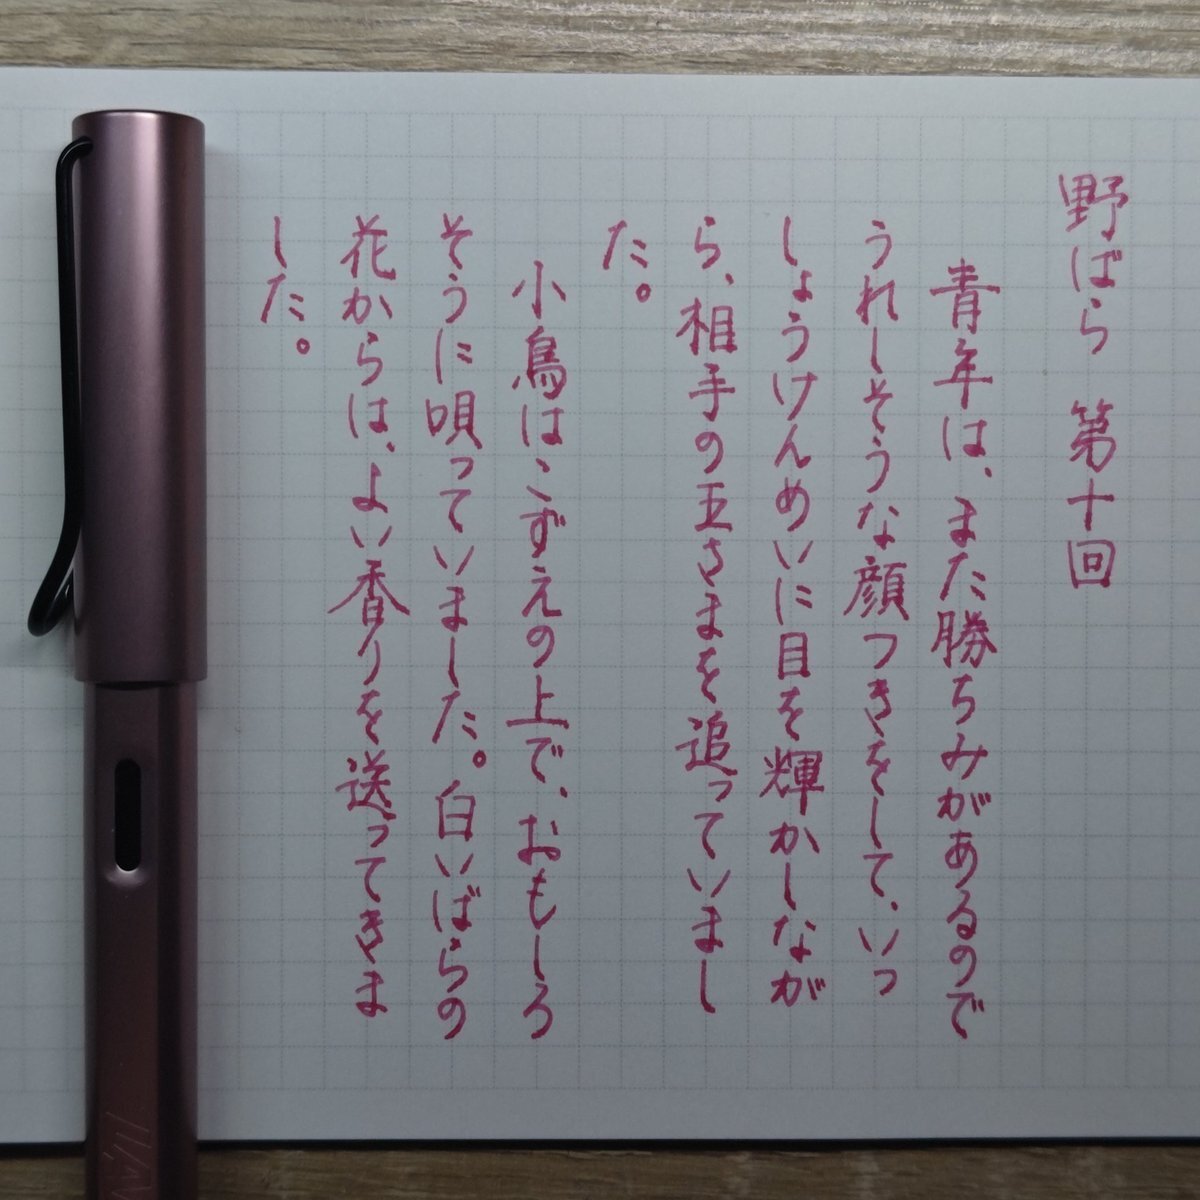 野ばら　第十回
青年は、また勝ちみがあるので
うれしそうな顔つきをして、いっ
しょうけんめいに目を輝かしなが
ら、相手の王さまを追っていまし
た。
小鳥はこずえの上で、おもしろ
そうに唄っていました。白いばらの
花からは、よい香りを送ってきま
した。